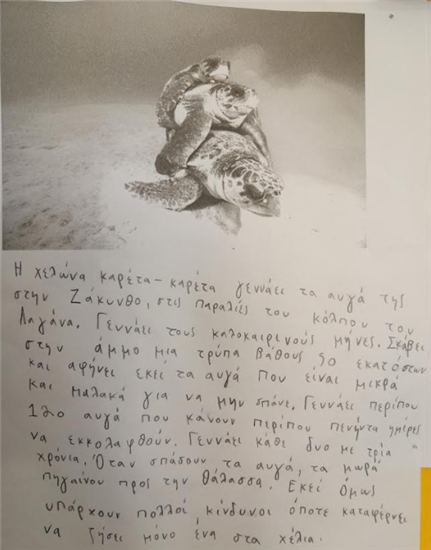 Η χελώνα καρέτα-καρέτα γεννάει τα αυγά της
στην Ζάκυνθο, στις παραλίες του κόλπου του
Λαγάνα. Γεννάει τους καλοκαιρινούς μήνες. Σκάβει
στην άμμο μια τρύπα βάθους 50 εκατοστών
και αφήνει εκεί τα αυγά που είναι μικρά
και μαλακά για να μην σπάνε. Γεννάει περίπου
120 αυγά που κάνουν περίπου πενήντα ημέρες
να εκκολαφθούν. Γεννάει κάθε δυο με τρία
χρόνια. Όταν σπάσουν τα αυγά, τα μωρά
πηγαίνου προς την θάλασσα. Εκεί όμως
υπάρχουν πολλοί κίνδυνοι οπότε καταφέρνει
να ζήσει μόνο ένα στα χέλια.